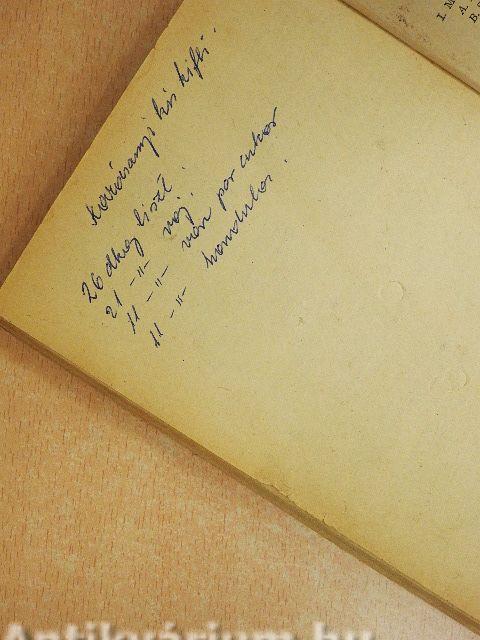 Karácsonyi kis kifli.
26 dkg liszt.
21 -"- vaj.
11 -"- van por cukor
11 -"- mandula.
I. M
A.
B.
Antikvárium.hu